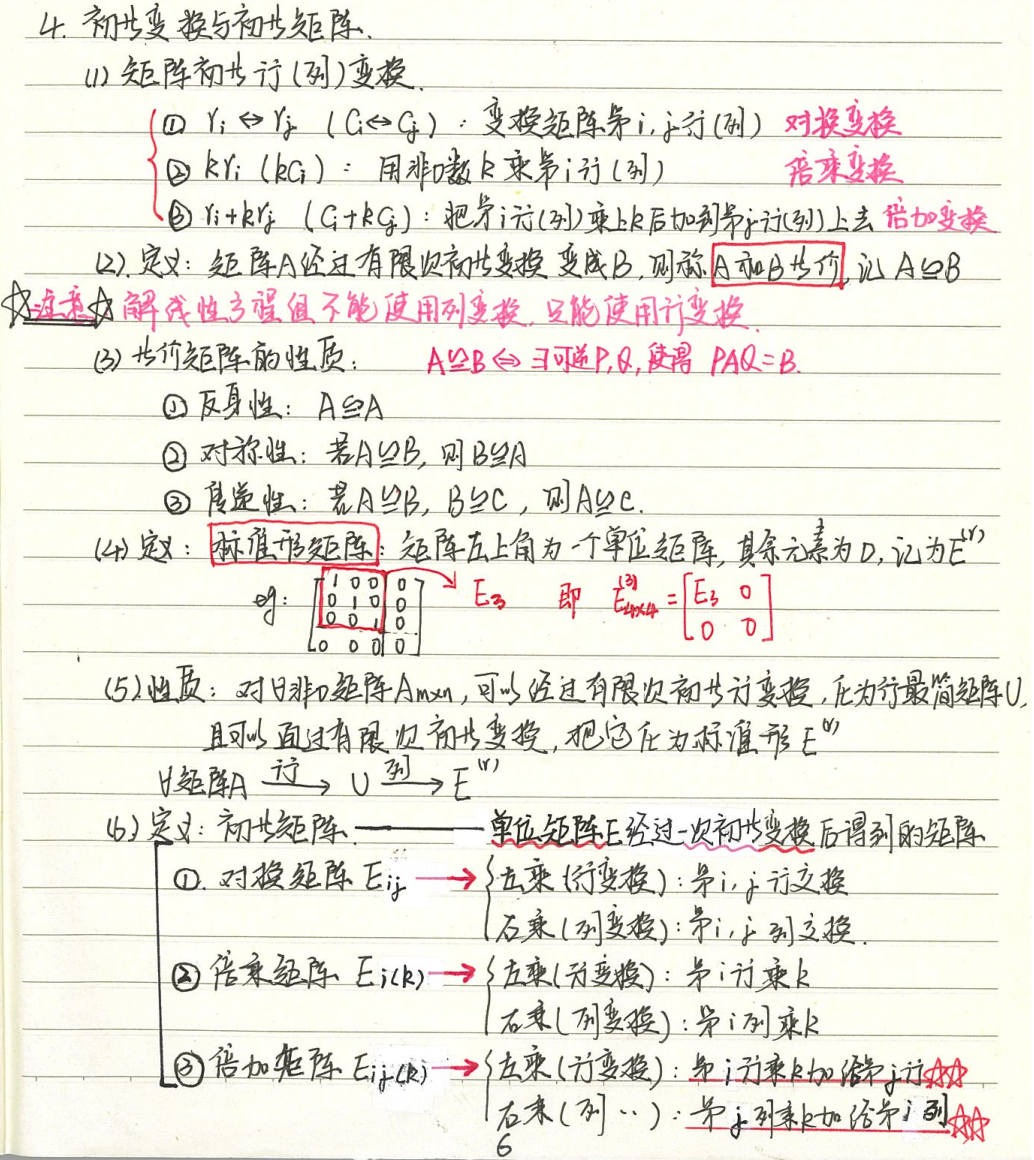 4. 初等变换与初等矩阵.
(1) 矩阵初等行(列)变换.
① ri ↔ rj (Ci↔Cj) : 变换矩阵第i,j行(列) 对换变换
② kri (kCi) : 用非0数k乘第i行(列) 倍乘变换
③ ri+krj (Ci+kCj) : 把第i行(列)乘上k后加到第j行(列)上去 倍加变换
(2). 定义: 矩阵A经过有限次初等变换变成B, 则称A和B等价, 记 A≌B
☆注意☆ 解线性方程组不能使用列变换, 只能使用行变换.
(3) 等价矩阵的性质: A≌B ⇔ ∃可逆P,Q, 使得 PAQ=B.
① 反身性: A≌A
② 对称性: 若A≌B, 则B≌A
③ 传递性: 若A≌B, B≌C, 则A≌C.
(4) 定义: 标准形矩阵: 矩阵左上角为一个单位矩阵, 其余元素为0, 记为E^(r)
eg: [1 0 0 0
0 1 0 0
0 0 1 0
0 0 0 0] → E3 即 E^(3)4×4 = [E3 0
0 0]
(5) 性质: 对∀非0矩阵Am×n, 可以经过有限次初等行变换, 化为行最简矩阵U,
且可以通过有限次初等变换, 把它化为标准形 E^(r)
∀矩阵A 行→ U 列→ E^(r)
(6) 定义: 初等矩阵 —— 单位矩阵E经过一次初等变换后得到的矩阵
①. 对换矩阵 Eij → { 左乘(行变换): 第i,j行交换
右乘(列变换): 第i,j列交换.
② 倍乘矩阵 Ei(k) → { 左乘(行变换): 第i行乘k
右乘(列变换): 第i列乘k
③ 倍加矩阵 Eij(k) → { 左乘(行变换): 第i行乘k加给第j行☆☆
右乘(列 ‥): 第j列乘k加给第i列☆☆
6